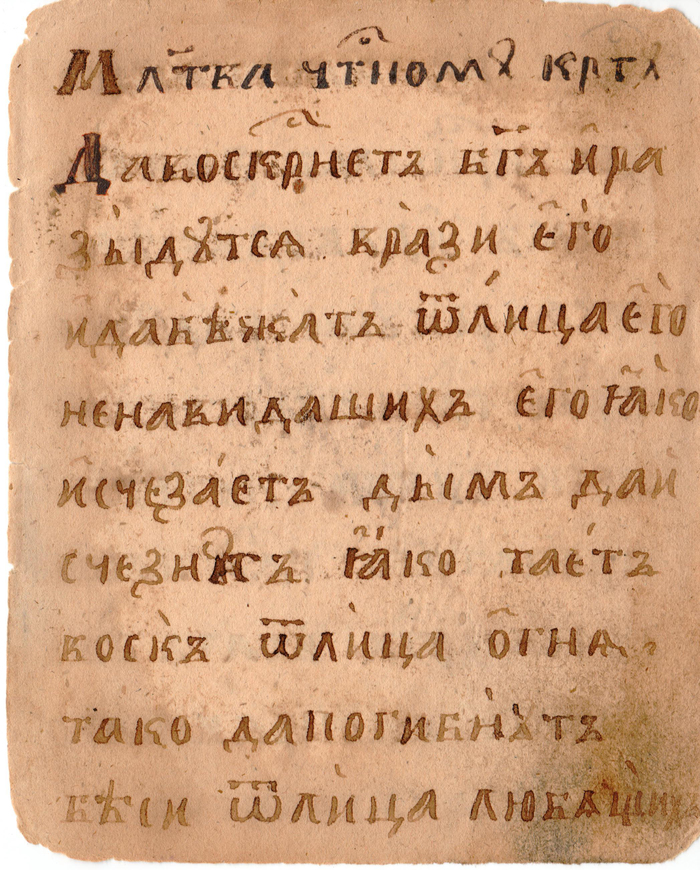 Мл҃тка чт҇номꙋ кртꙋ
Давоскр҇нетъ бг҃ъ и҆ра
зы́дꙋтсѧ врази є҆го̀
и҆дабѣжа́тъ ѿли́ца є҆го̀
ненавидащихъ є҆го ꙗ҆́ко
и҆счеза́етъ ды́мъ даи
счезнꙋтъ ꙗ҆́ко тае́тъ
воскъ ѿли́ца о҆гнѧ
тако дапогибнꙋтъ
бѣси ѿли́ца любѧщих